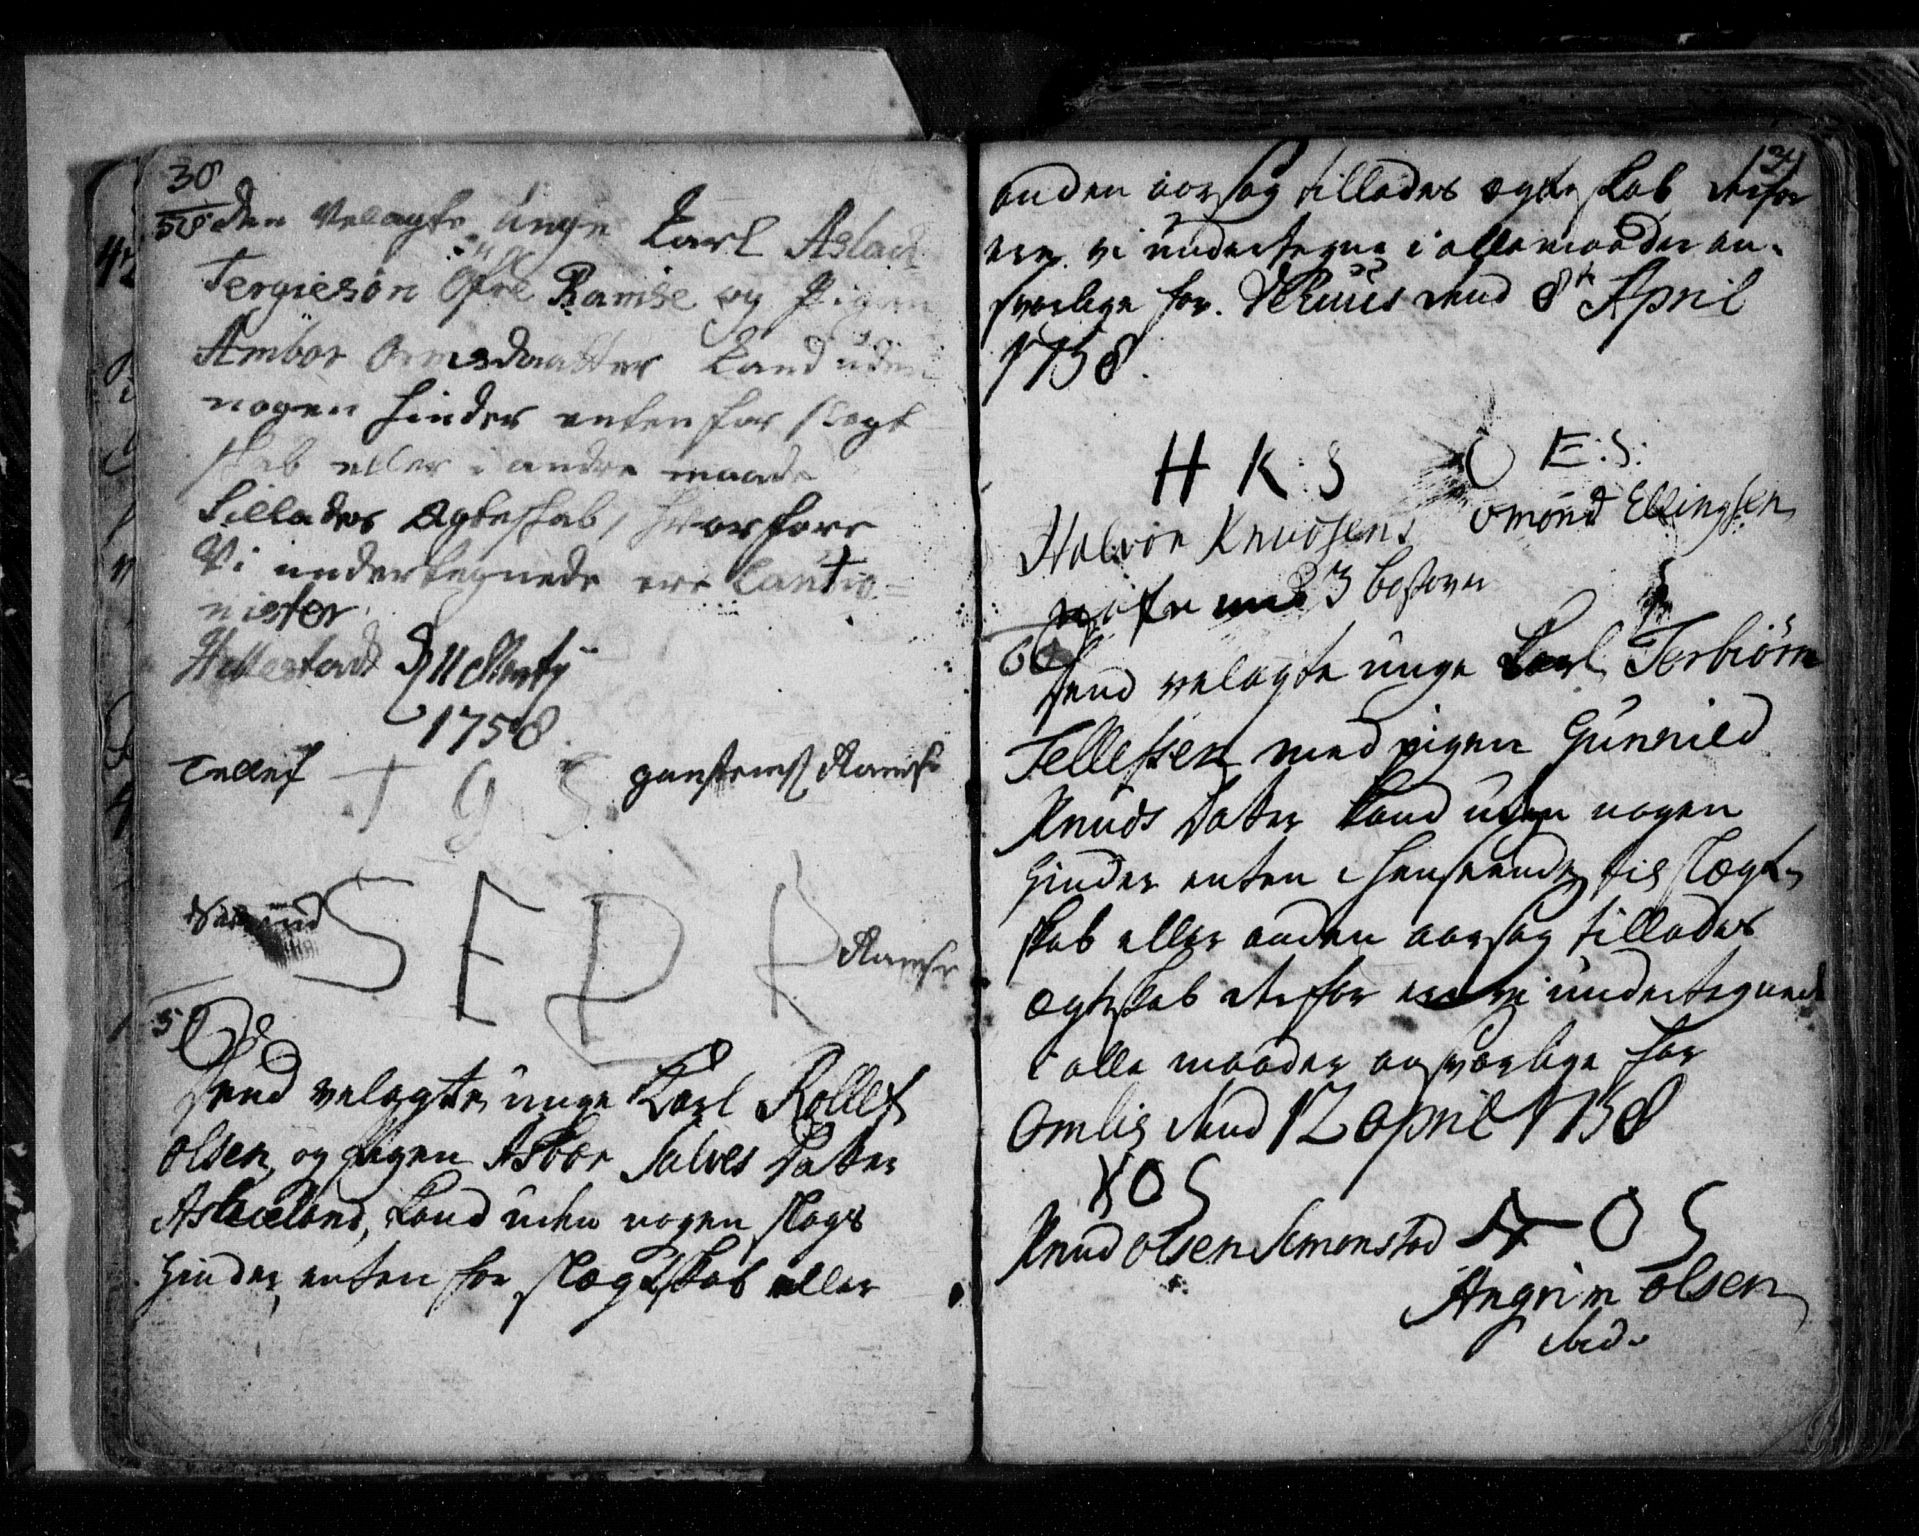 30
58 den velagte unge Karl Aslach
Tergiesøn Øfre Ramse og Pigen
Ambør Ormsdaatter Kand uden
nogen hinder enten for slegt
skab eller i andre maade
tillades Ægteskab, hvorfore
Vi undertegnede ere Cautio=
nister.
Hellestad d 11 Marty
1758.
Tellef T G S gunstensß Ramse
S E D R Ramse
59
Dend velagte unge Karl Rollef
Olsen, og Pigen Asbor Salves Datter
Askeland, kand uden nogen slags
hinder, enten for slægtskab eller
31
anden aarsag tillades ægteskab derfor
ere vi undertegne i alle maader an-
svarlige for. Vehuus dend 8de April
1758.
H K S O E:S:
Halvor Knudsens Omönd Ellingsen
3 bogstaver
60
Dend velagte unge Karl Terbiørn
Tellefsen med pigen Gunnild
Knuds Datter kand uden nogen
hinder enten i henseende til slægt-
skab eller anden aarsag tillades
ægteskab derfor ere vi undertegnede
i alle maader ansvarlige for
Omlie dend 12 april 1758
K O S
Knud Olsen Simonstad A O S
Angrim Olsen
ibid.